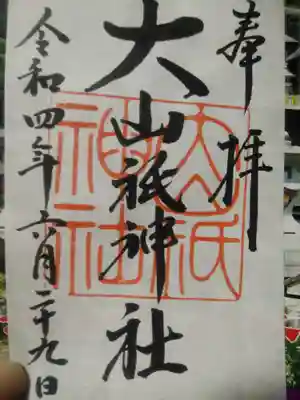 奉拝
大山祇神社
令和四年六月二十九日
大山祇
神社